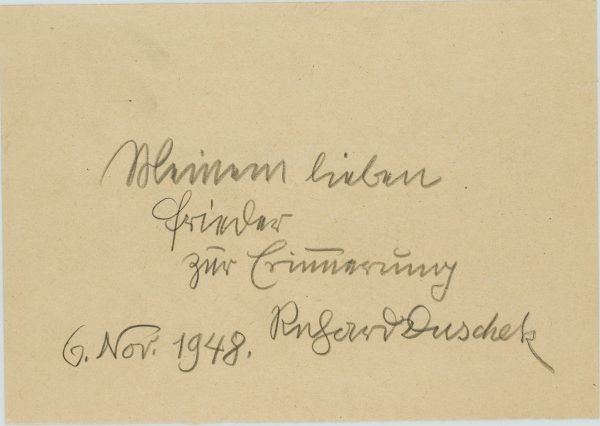 Meinem lieben
Frieder
zur Erinnerung
Richard Duschek
6. Nov. 1948.